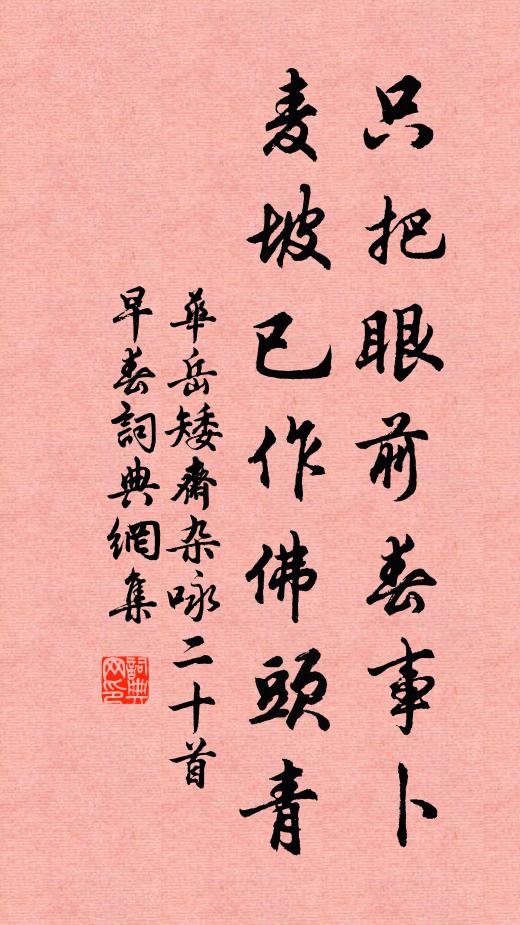 只把眼前春事卜
麦坡已作佛頭青
華岳矮齋杂咏二十首
早春詞典網集
詞典网印